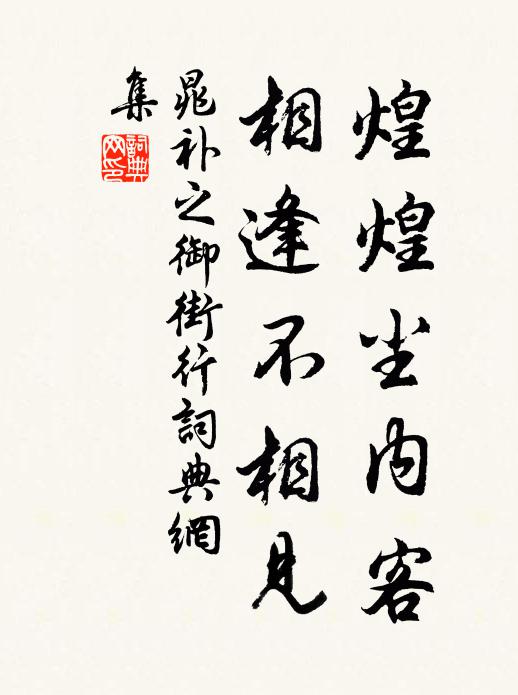 煌煌尘内客
相逢不相見
晁补之御街行詞典網
集
詞典
网印